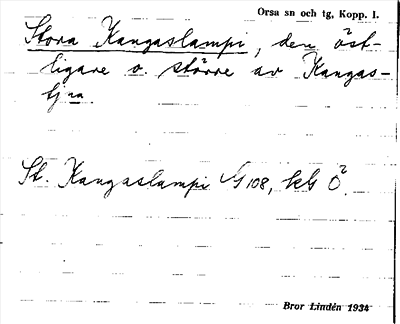 Orsa sn och tg, Kopp. l.
Stora Kangaslampi, den öst-
ligare o. större av Kangas-
tjna
St. Kangaslampi G 108, kb Ö.
Bror Lindén 1934